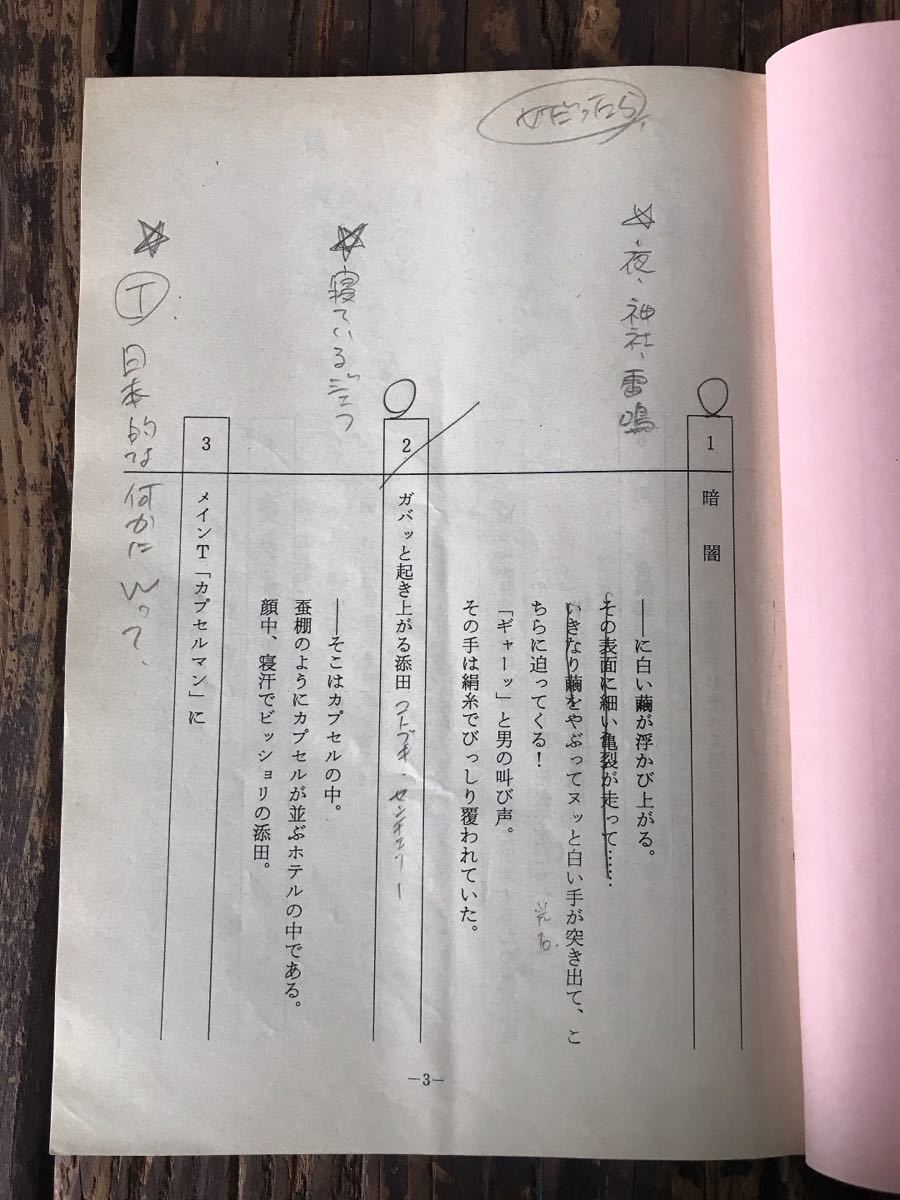 ☆夜、神社、雷鳴
1 暗闇
――に白い繭が浮かび上がる。
その表面に細い亀裂が走って……
いきなり繭をやぶってヌッと白い手が突き出て、こ
ちらに迫ってくる！
「ギャーッ」と男の叫び声。
その手は絹糸でびっしり覆われていた。
☆寝ている
2 ガバッと起き上がる添田
――そこはカプセルの中。
蚕棚のようにカプセルが並ぶホテルの中である。
顔中、寝汗でビッショリの添田。
3 メインT「カプセルマン」に
☆Ⓣ日本的な何かにWって、
―3―